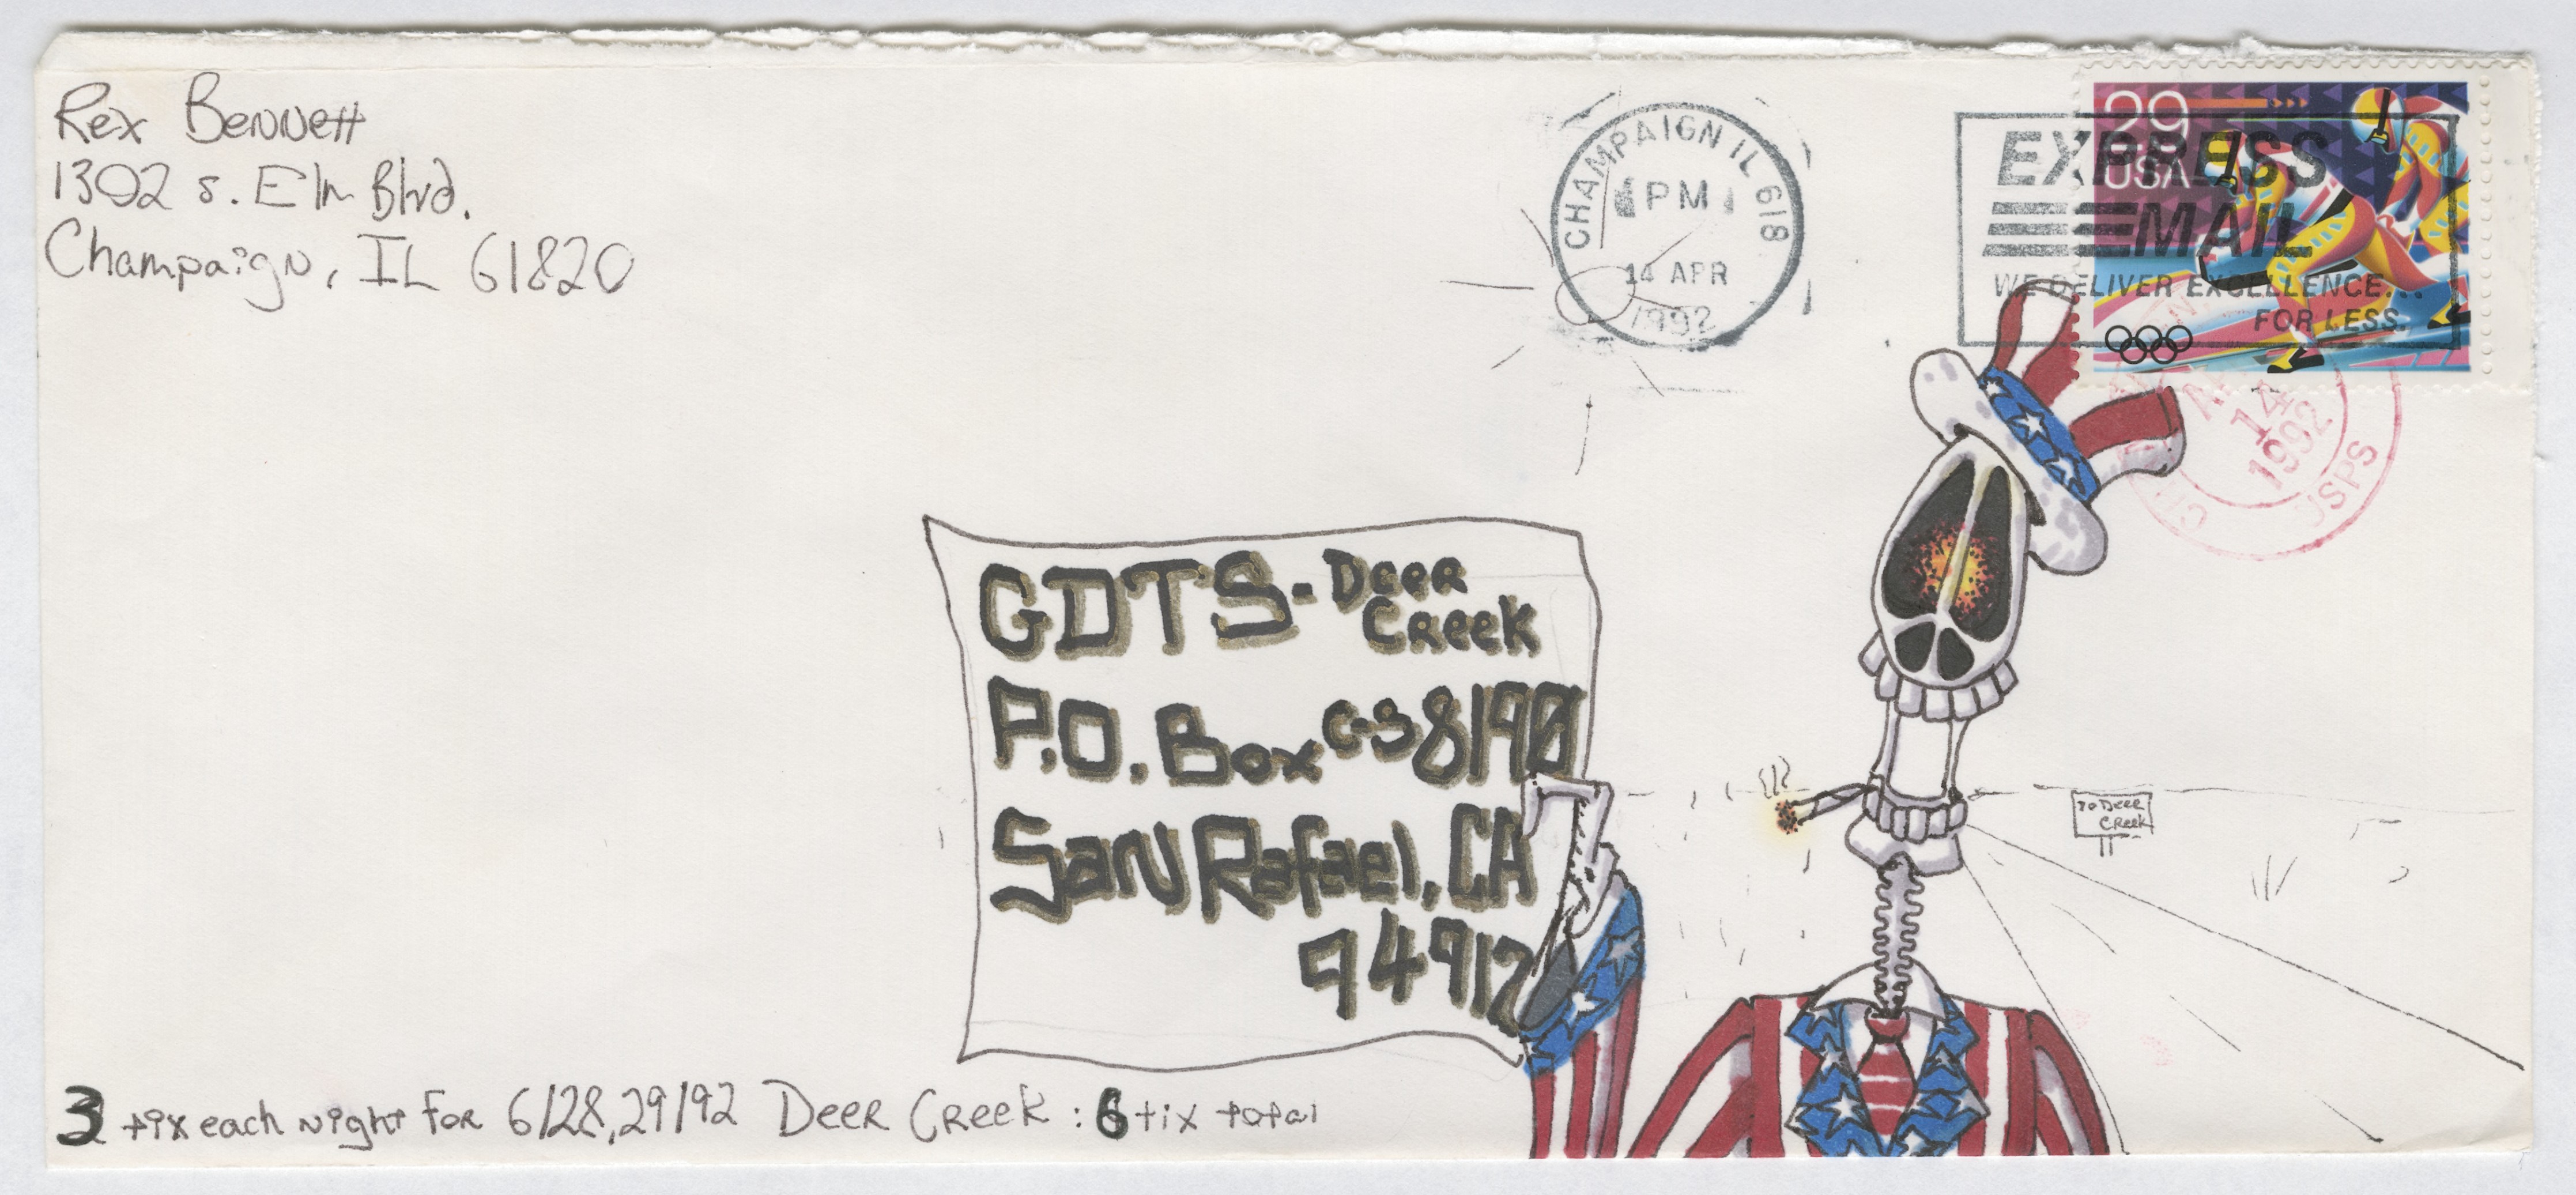 Rex Bennett
1302 S. Elm Blvd.
Champaign, IL 61820
CHAMPAIGN IL 618
PM
14 APR
1992
29
USA
EXPRESS
MAIL
WE DELIVER EXCELLENCE...
FOR LESS.
14
1992
USPS
GDTS - Deer
Creek
P.O. Box C-S 8190
San Rafael, CA
94912
TO Deer
Creek
3 tix each night for 6/28,29/92 Deer Creek : 6 tix total